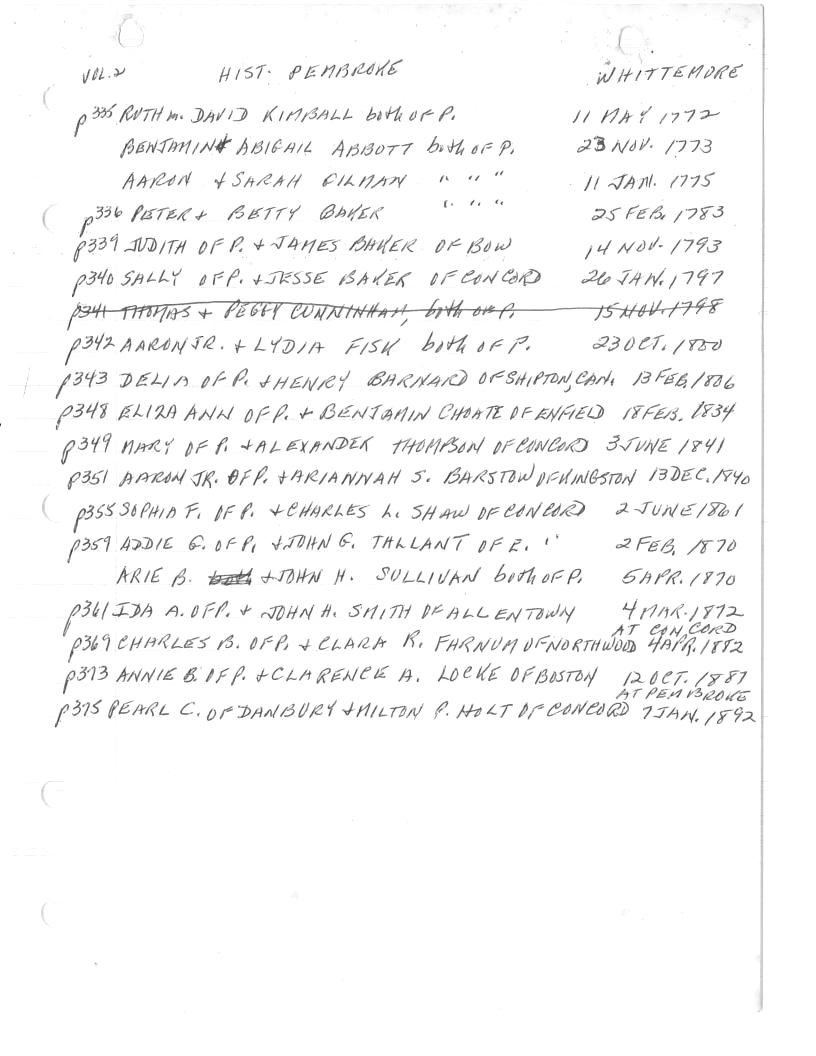 VOL. 2 HIST. PEMBROKE WHITTEMORE
p335 RUTH m. DAVID KIMBALL both OF P. 11 MAY 1772
BENJAMIN + ABIGAIL ABBOTT both OF P. 23 NOV. 1773
AARON + SARAH GILMAN " " " 11 JAN. 1775
p336 PETER + BETTY BAKER " " " 25 FEB. 1783
p339 JUDITH OF P. + JAMES BAKER OF BOW 14 NOV. 1793
p340 SALLY OF P. + JESSE BAKER OF CONCORD 26 JAN. 1797
p341 THOMAS + PEGGY CUNNINHAM, both OF P. 15 NOV. 1798
p342 AARON JR. + LYDIA FISK both OF P. 23 OCT. 1800
p343 DELIA OF P. + HENRY BARNARD OF SHIPTON, CAN. 13 FEB. 1806
p348 ELIZA ANN OF P. + BENJAMIN CHOATE OF ENFIELD 18 FEB. 1834
p349 MARY OF P. + ALEXANDER THOMPSON OF CONCORD 3 JUNE 1841
p351 AARON JR. OF P. + ARIANNAH S. BARSTOW OF KINGSTON 13 DEC. 1840
p355 SOPHIA F. OF P. + CHARLES L. SHAW OF CONCORD 2 JUNE 1861
p359 ADDIE G. OF P. + JOHN G. TALLANT OF E. " 2 FEB. 1870
ARIE B. both + JOHN H. SULLIVAN both OF P. 5 APR. 1870
p361 IDA A. OF P. + JOHN H. SMITH OF ALLENTOWN 4 MAR. 1872
AT CONCORD
p369 CHARLES B. OF P. + CLARA R. FARNUM OF NORTHWOOD 4 APR. 1882
p373 ANNIE B. OF P. + CLARENCE A. LOCKE OF BOSTON 12 OCT. 1887
AT PEMBROKE
p375 PEARL C. OF DANBURY + MILTON P. HOLT OF CONCORD 7 JAN. 1892